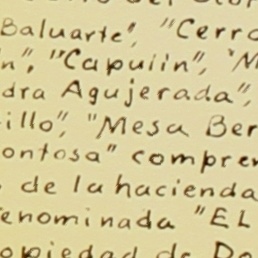 Baluarte", "Cerro
n", "Capulin", "M
dra Agujerada",
illo", "Mesa Ber
ontosa" compren
de la hacienda
enominada "EL
opiedad de Do